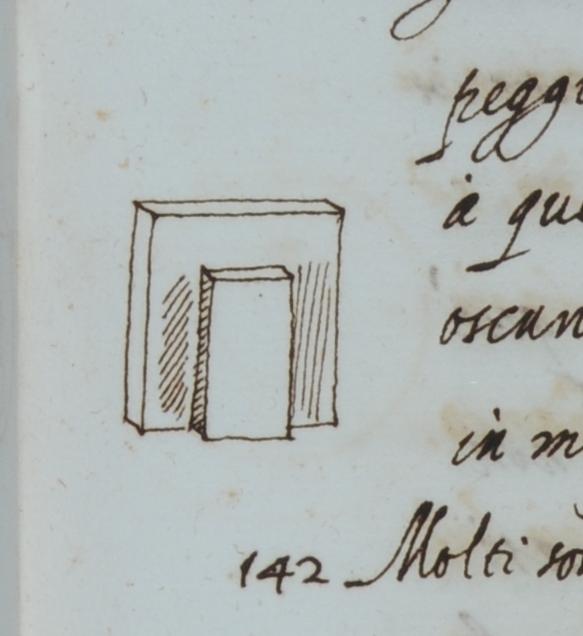 peggi
à que
oscun
in m
142 Molti son